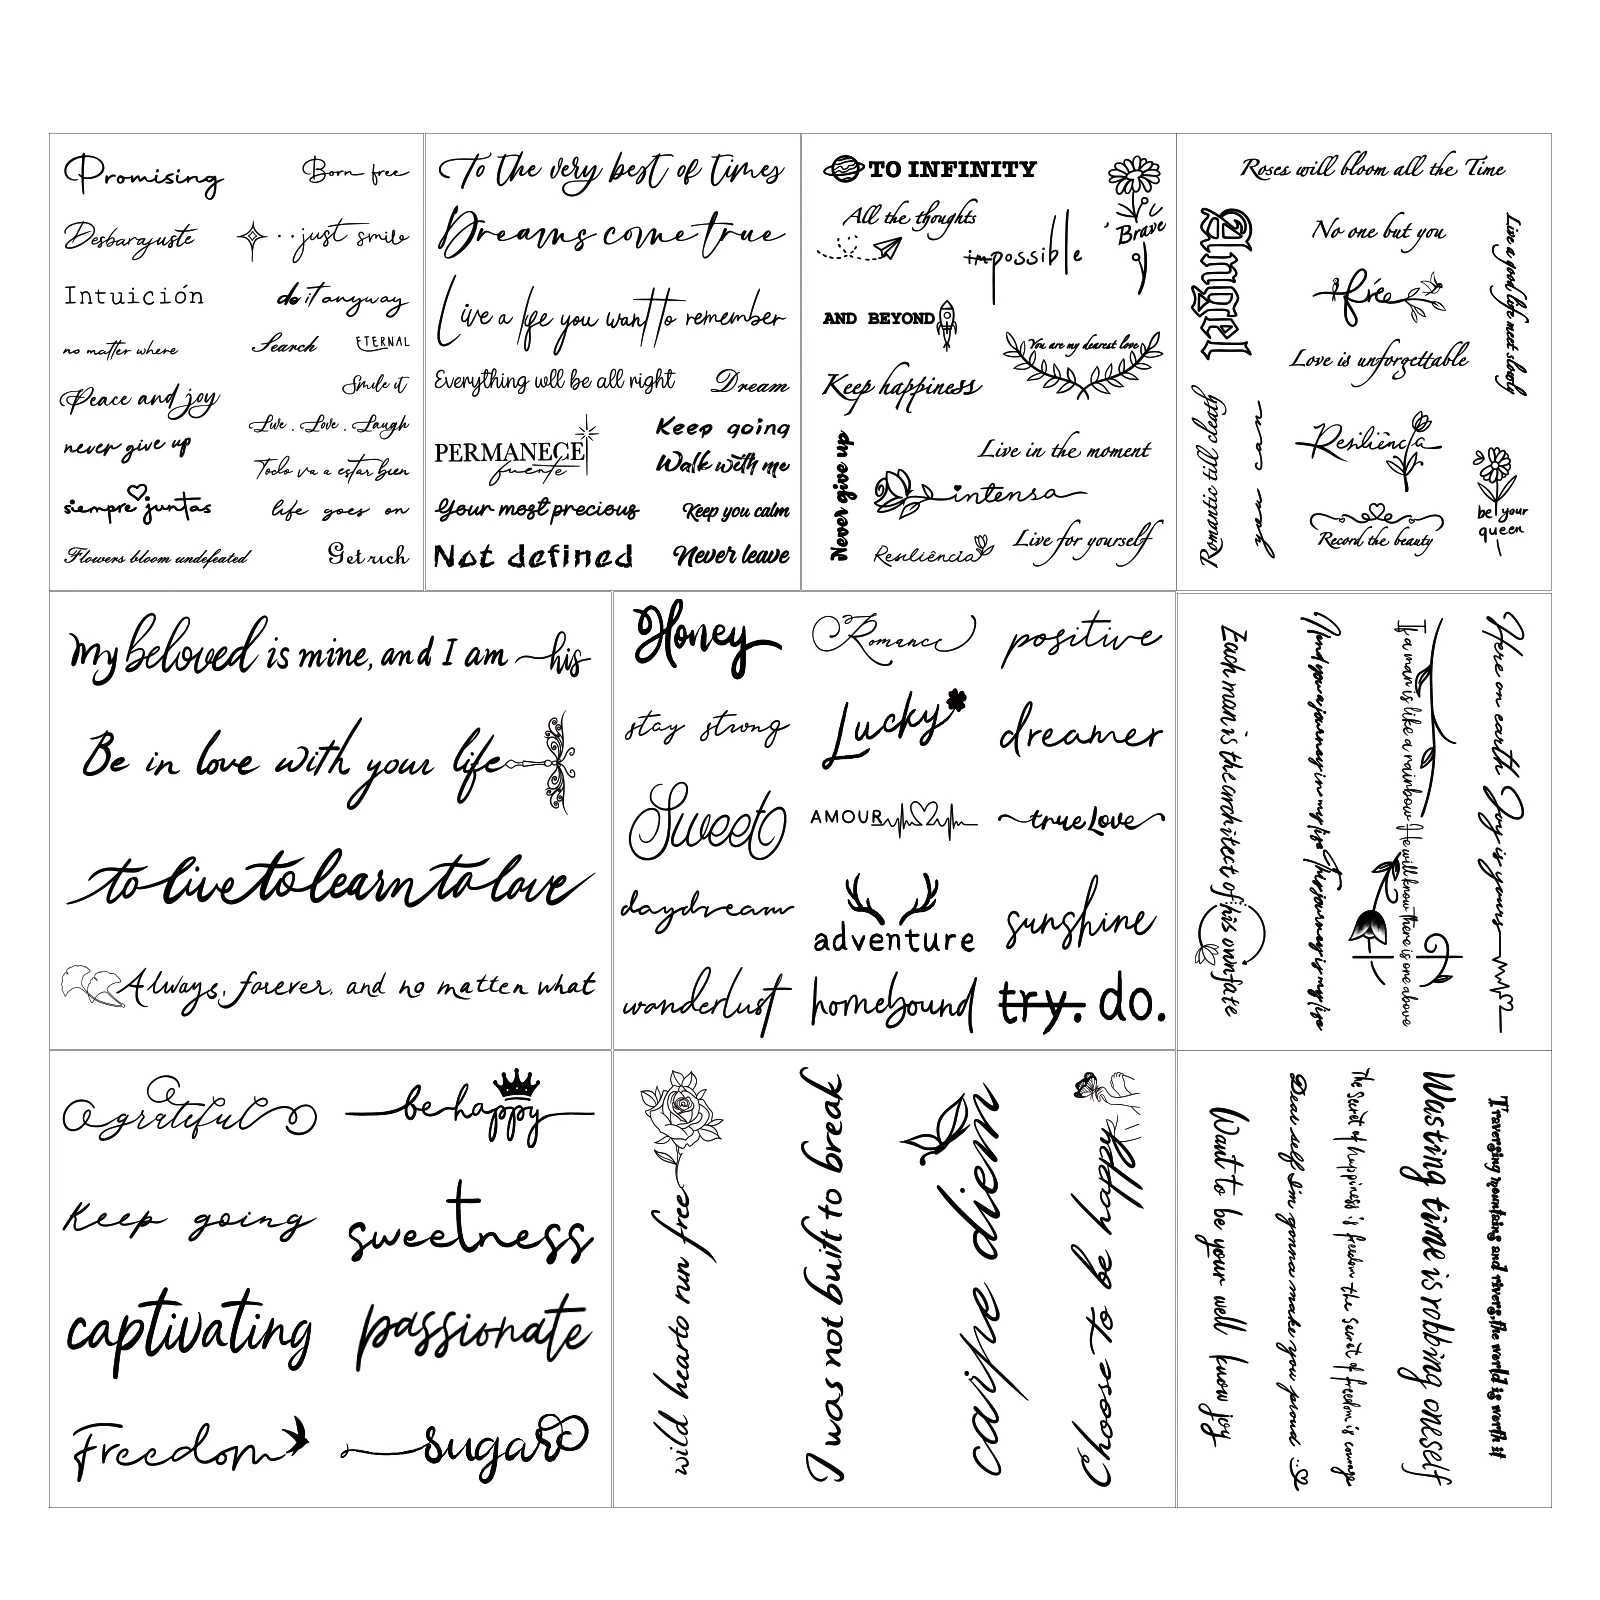 Promising
Born free
Desbarajuste
just smile
Intuición
do it anyway
no matter where
Search
ETERNAL
Smile it
Peace and joy
Live . Love . Laugh
never give up
Todo va a estar bien
siempre juntas
life goes on
Flowers bloom undefeated
Get rich
To the very best of times
Dreams come true
Live a life you want to remember
Everything will be all right
Dream
PERMANECE
fuerte
Keep going
Walk with me
Your most precious
Keep you calm
Not defined
Never leave
TO INFINITY
All the thoughts
impossible
Brave
AND BEYOND
You are my dearest love
Keep happiness
Never give up
Live in the moment
intensa
Resiliência
Live for yourself
Roses will bloom all the Time
Angel
No one but you
Live a good life meet slowly
free
Love is unforgettable
Romantic till death
you can
Resiliência
Record the beauty
be your
queen
My beloved is mine, and I am his
Be in love with your life
to live to learn to love
Always, forever, and no matten what
Honey
Romance
positive
stay strong
Lucky
dreamer
Sweet
AMOUR
true Love
daydream
adventure
sunshine
wanderlust
homebound
try. do.
Each man is the architect of his own fate
And your journey in my life This journey is my life
If a man is like a rainbow He will know there is one above
Here on earth Joy is yours
grateful
be happy
Keep going
sweetness
captivating
passionate
Freedom
sugar
wild hearts run free
I was not built to break
carpe diem
Choose to be happy
Want to be your well know joy
Dear self I'm gonna make you proud
The Secret of happiness is freedom the secret of freedom is courage
Wasting time is robbing oneself
Traversing mountains and rivers,the world is worth it